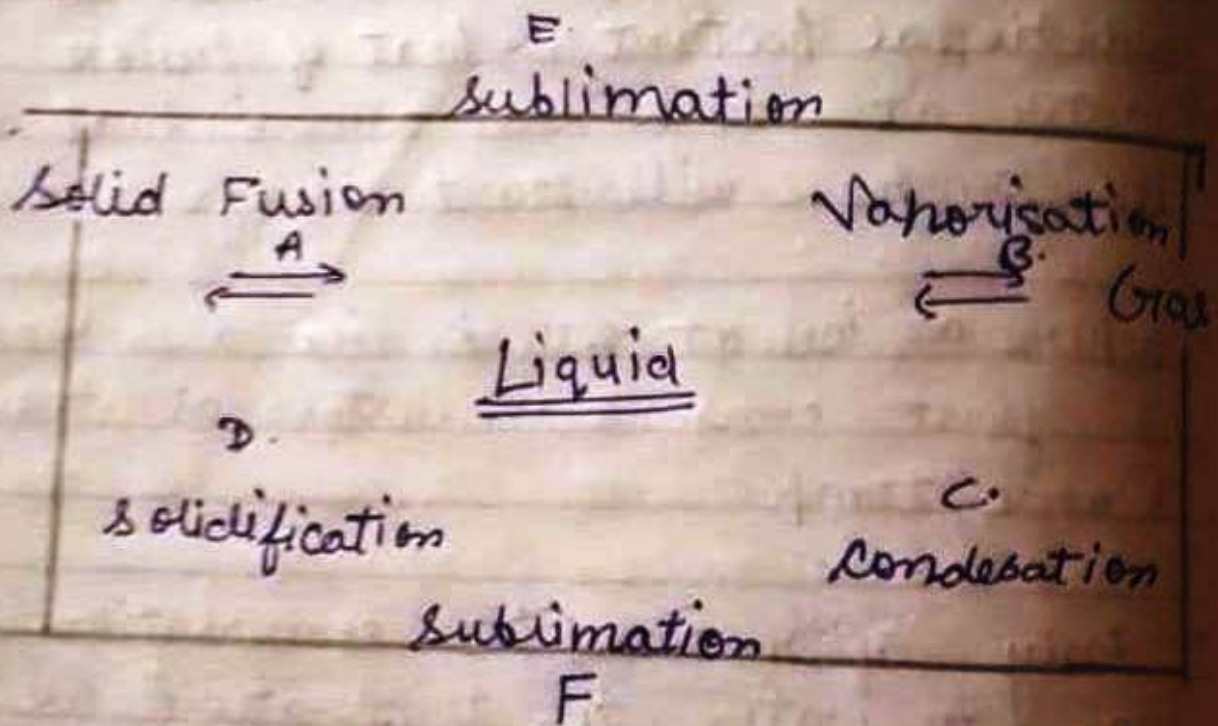 E.
sublimation
Solid Fusion
A
Vaporisation
B.
Gas
Liquid
D.
solidification
C.
condesation
sublimation
F